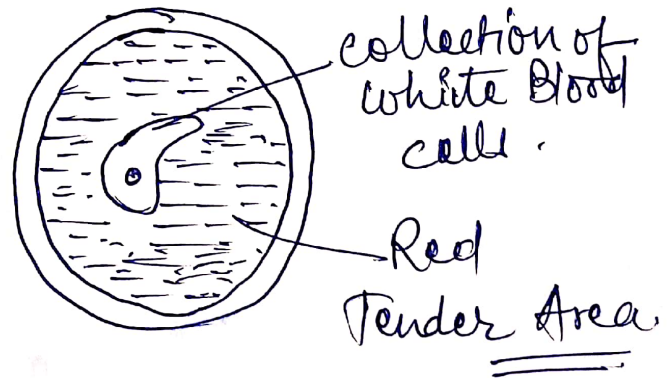 collection of
white Blood
cells.
Red
Tender Area.